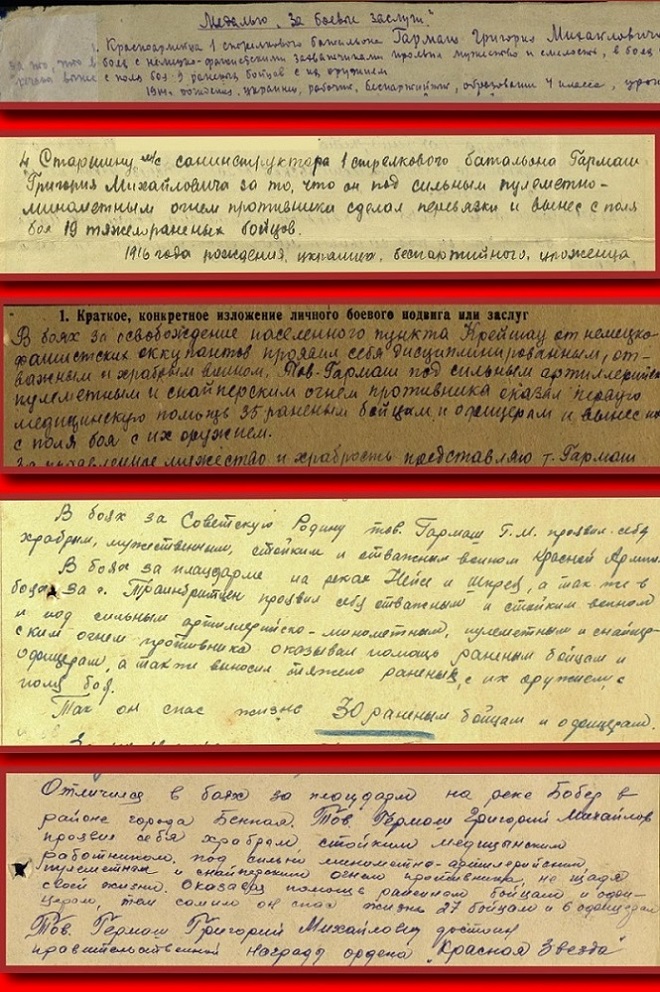 Медалью „За боевые заслуги"
1. Красноармейца 1 стрелкового батальона Гармаш Григория Михайловича
за то, что в боях с немецко-фашистскими захватчиками проявил мужество и смелость, в боях
вынес с поля боя 9 раненых бойцов с их оружием
рождения, украинец, рабочий, беспартийный, образование 4 класса, урож
4 Старшину м/с санинструктора 1 стрелкового батальона Гармаш
Григория Михайловича за то, что он под сильным пулеметно-
минометным огнем противника сделал перевязки и вынес с поля
боя 19 тяжелораненых бойцов.
1916 года рождения, украинца, беспартийного, уроженца
1. Краткое, конкретное изложение личного боевого подвига или заслуг
В боях за освобождение населенного пункта Крейшау от немецко-
фашистских оккупантов проявил себя дисциплинированным, от-
важным и храбрым воином. Тов. Гармаш под сильным артиллерийско
пулеметным и снайперским огнем противника оказал первую
медицинскую помощь 35 раненым бойцам и офицерам и вынес их
с поля боя с их оружием.
За проявленное мужество и храбрость представляю т. Гармаш
В боях за Советскую Родину тов. Гармаш Г.М. проявил себя
храбрым, мужественным, стойким и отважным воином Красной Армии.
В боях за плацдарме на реках Нейсе и Шпрее, а так же в
боях за г. Трайнбритцен проявил себя отважным и стойким воином
и под сильным артиллерийско-минометным, пулеметным и снайпер-
ским огнем противника оказывал помощь раненым бойцам и
офицерам, а так же выносил тяжело раненых с их оружием с
поля боя.
Так он спас жизнь 30 раненым бойцам и офицерам.
Отличился в боях за плацдарм на реке Бобер в
районе города Беннау. Тов Гермаш Григорий Михайлов
проявил себя храбрым, стойким медицинским
работником. под сильным минометно-артиллерийским
пулеметным и снайперским огнем противника, не щадя
своей жизни. Оказывал помощь раненным бойцам и офи-
церам, тем самым он спас жизнь 27 бойцам и 6 офицерам
Тов. Гермаш Григорий Михайлович достоин
правительственной награды ордена „Красная Звезда"